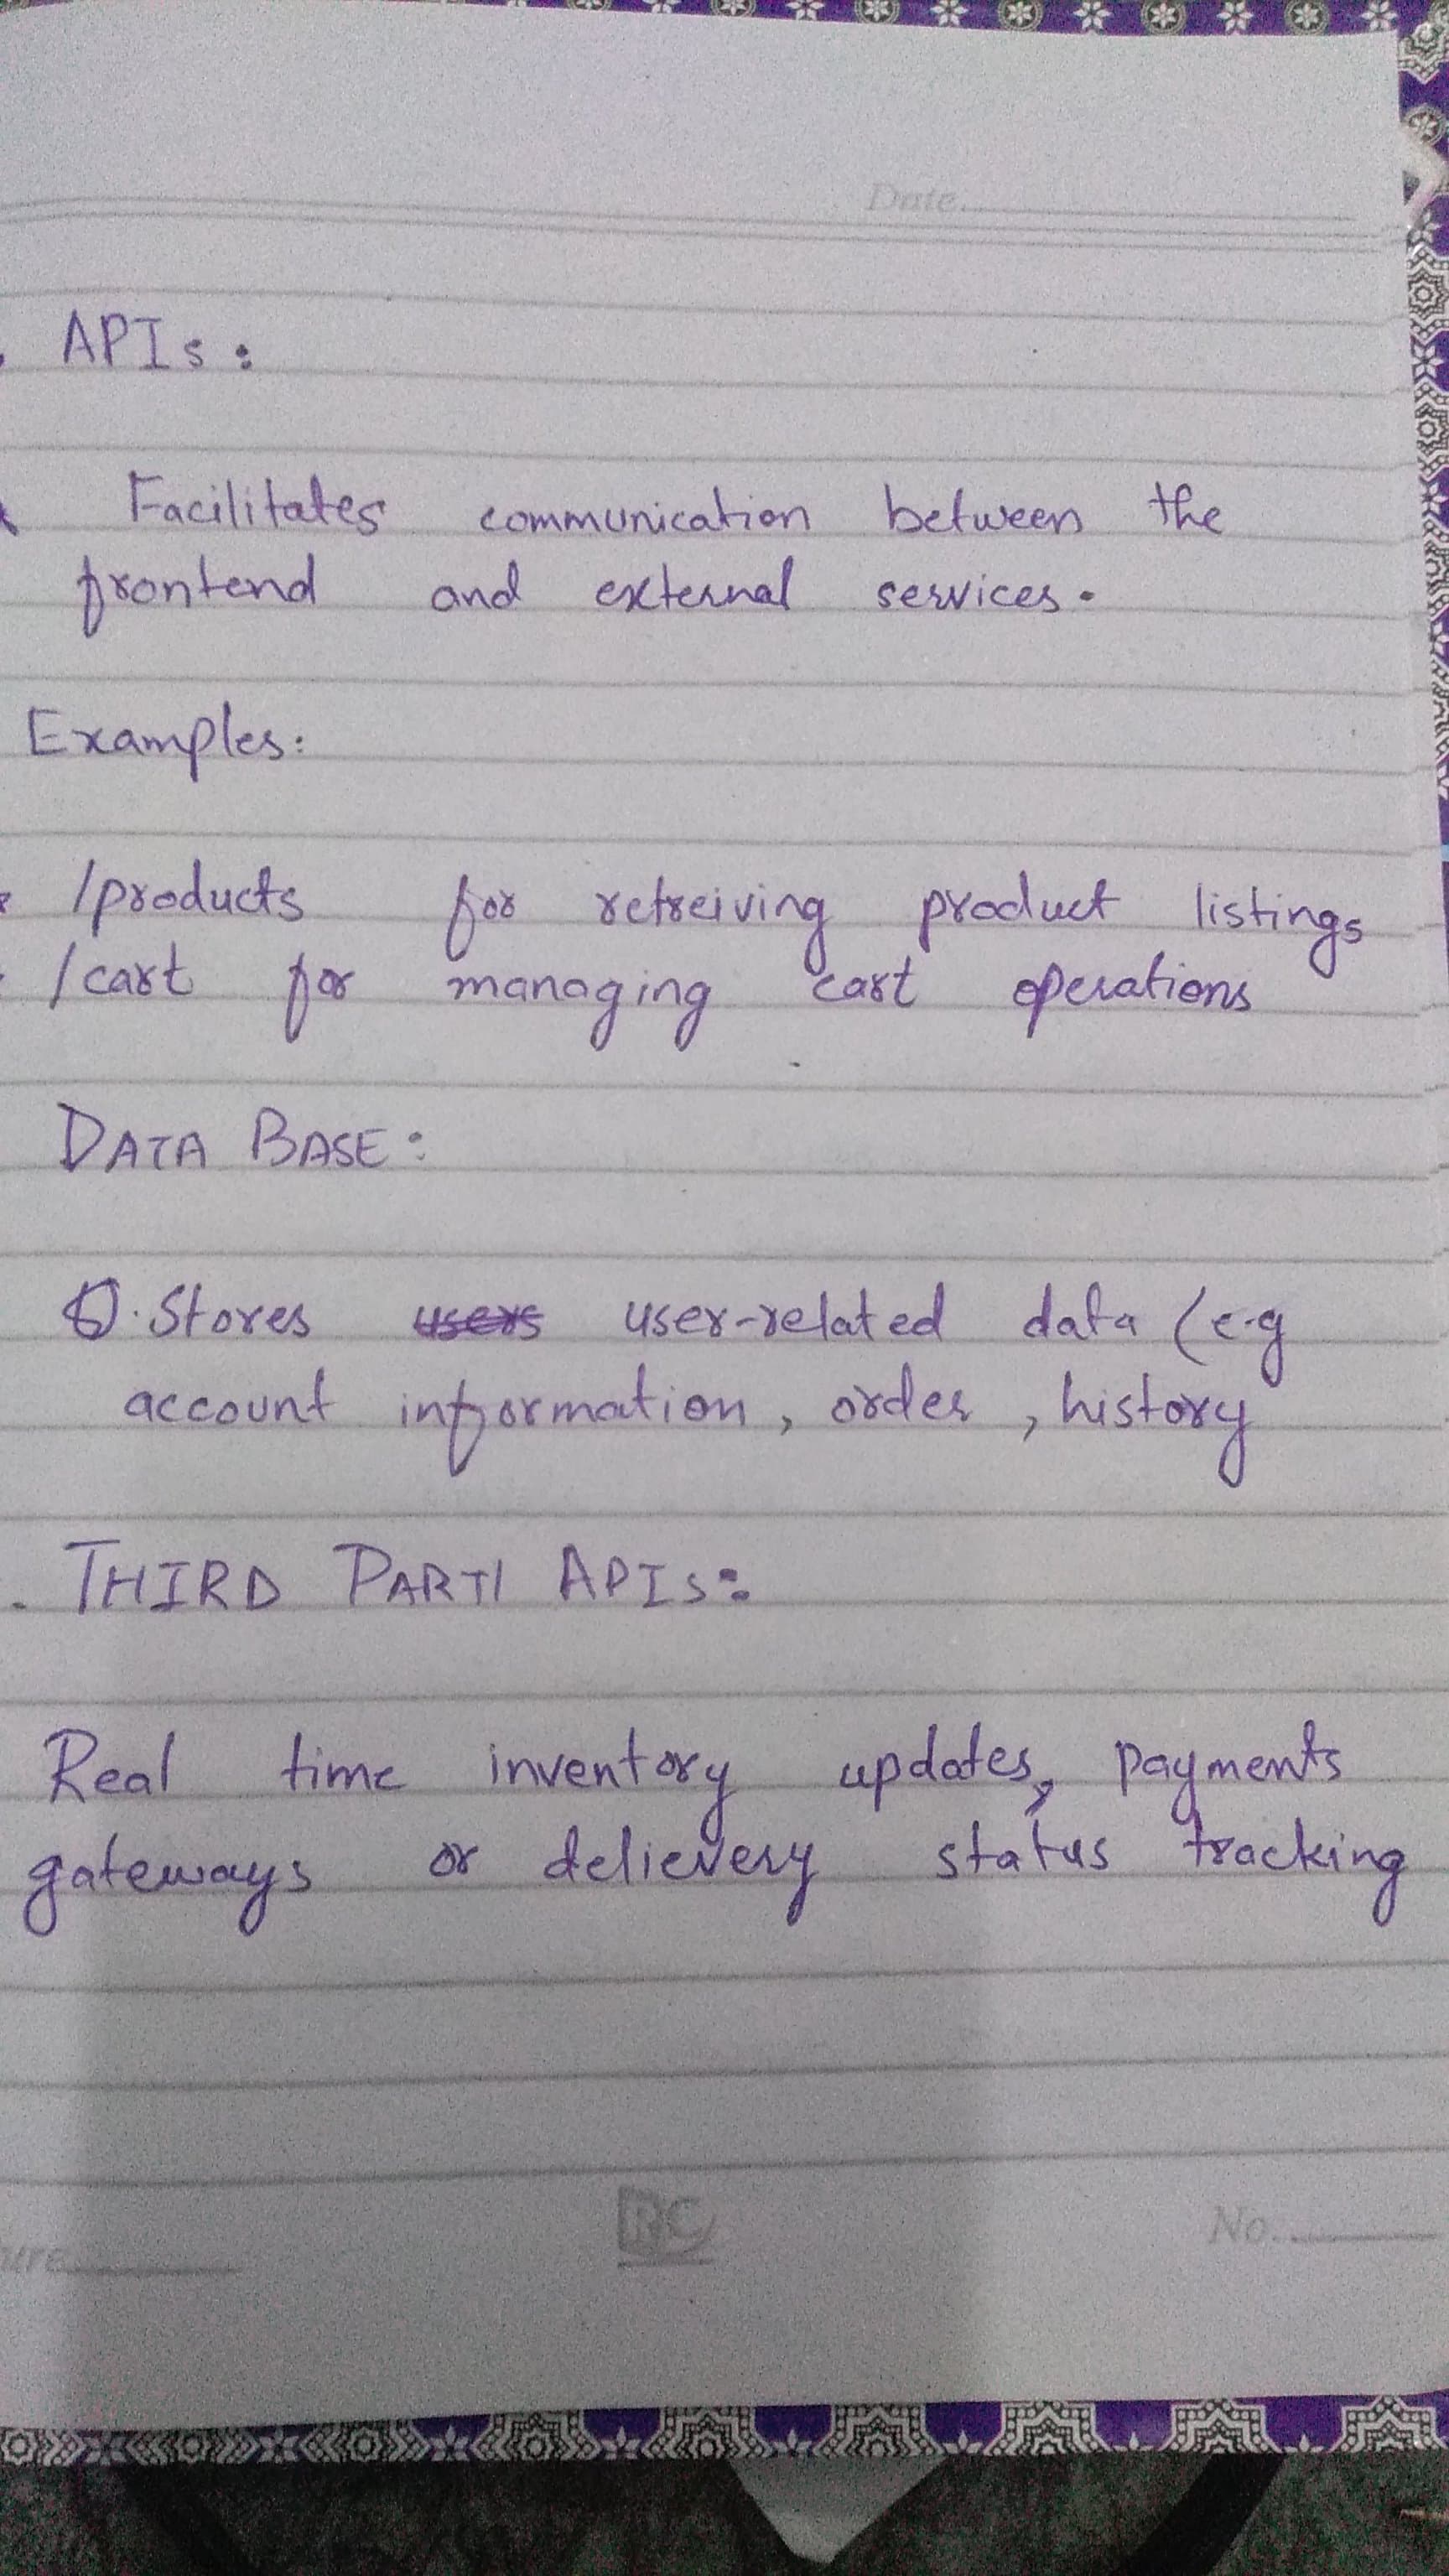 Date.
APIs:
Facilitates communication between the
frontend and external services.
Examples:
/products for retreiving product listings
/cart for managing cart operations
DATA BASE:
Stores users user-related data (e.g
account information, order, history
THIRD PARTI APIs:
Real time inventory updates, payments
gateways or delievery status tracking
RC
No.